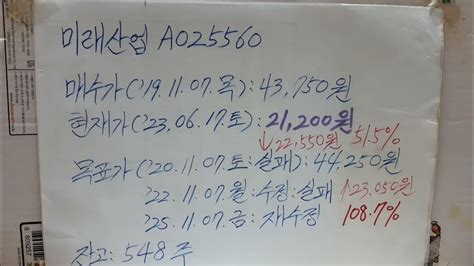 미래산업 A025560
매수가('19.11.07.목): 43,750원
현재가('23.06.17.토): 21,200원
↓22,550원 51.5%
목표가('20.11.07.토:실패): 44,250원
'22.11.07.월:수정.실패 ↑23,050원
'25.11.07.금: 재수정 108.7%
잔고: 548주